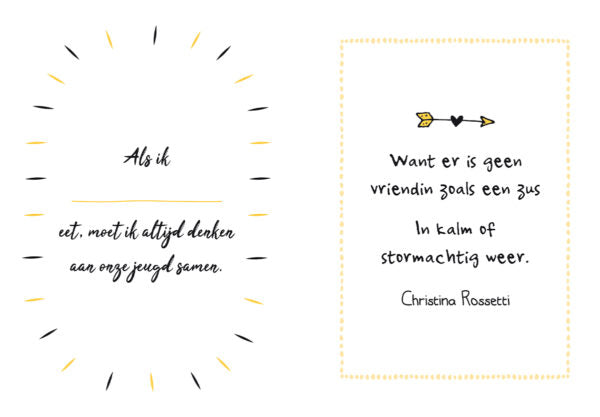 Als ik
eet, moet ik altijd denken
aan onze jeugd samen.
Want er is geen
vriendin zoals een zus
In kalm of
stormachtig weer.
Christina Rossetti